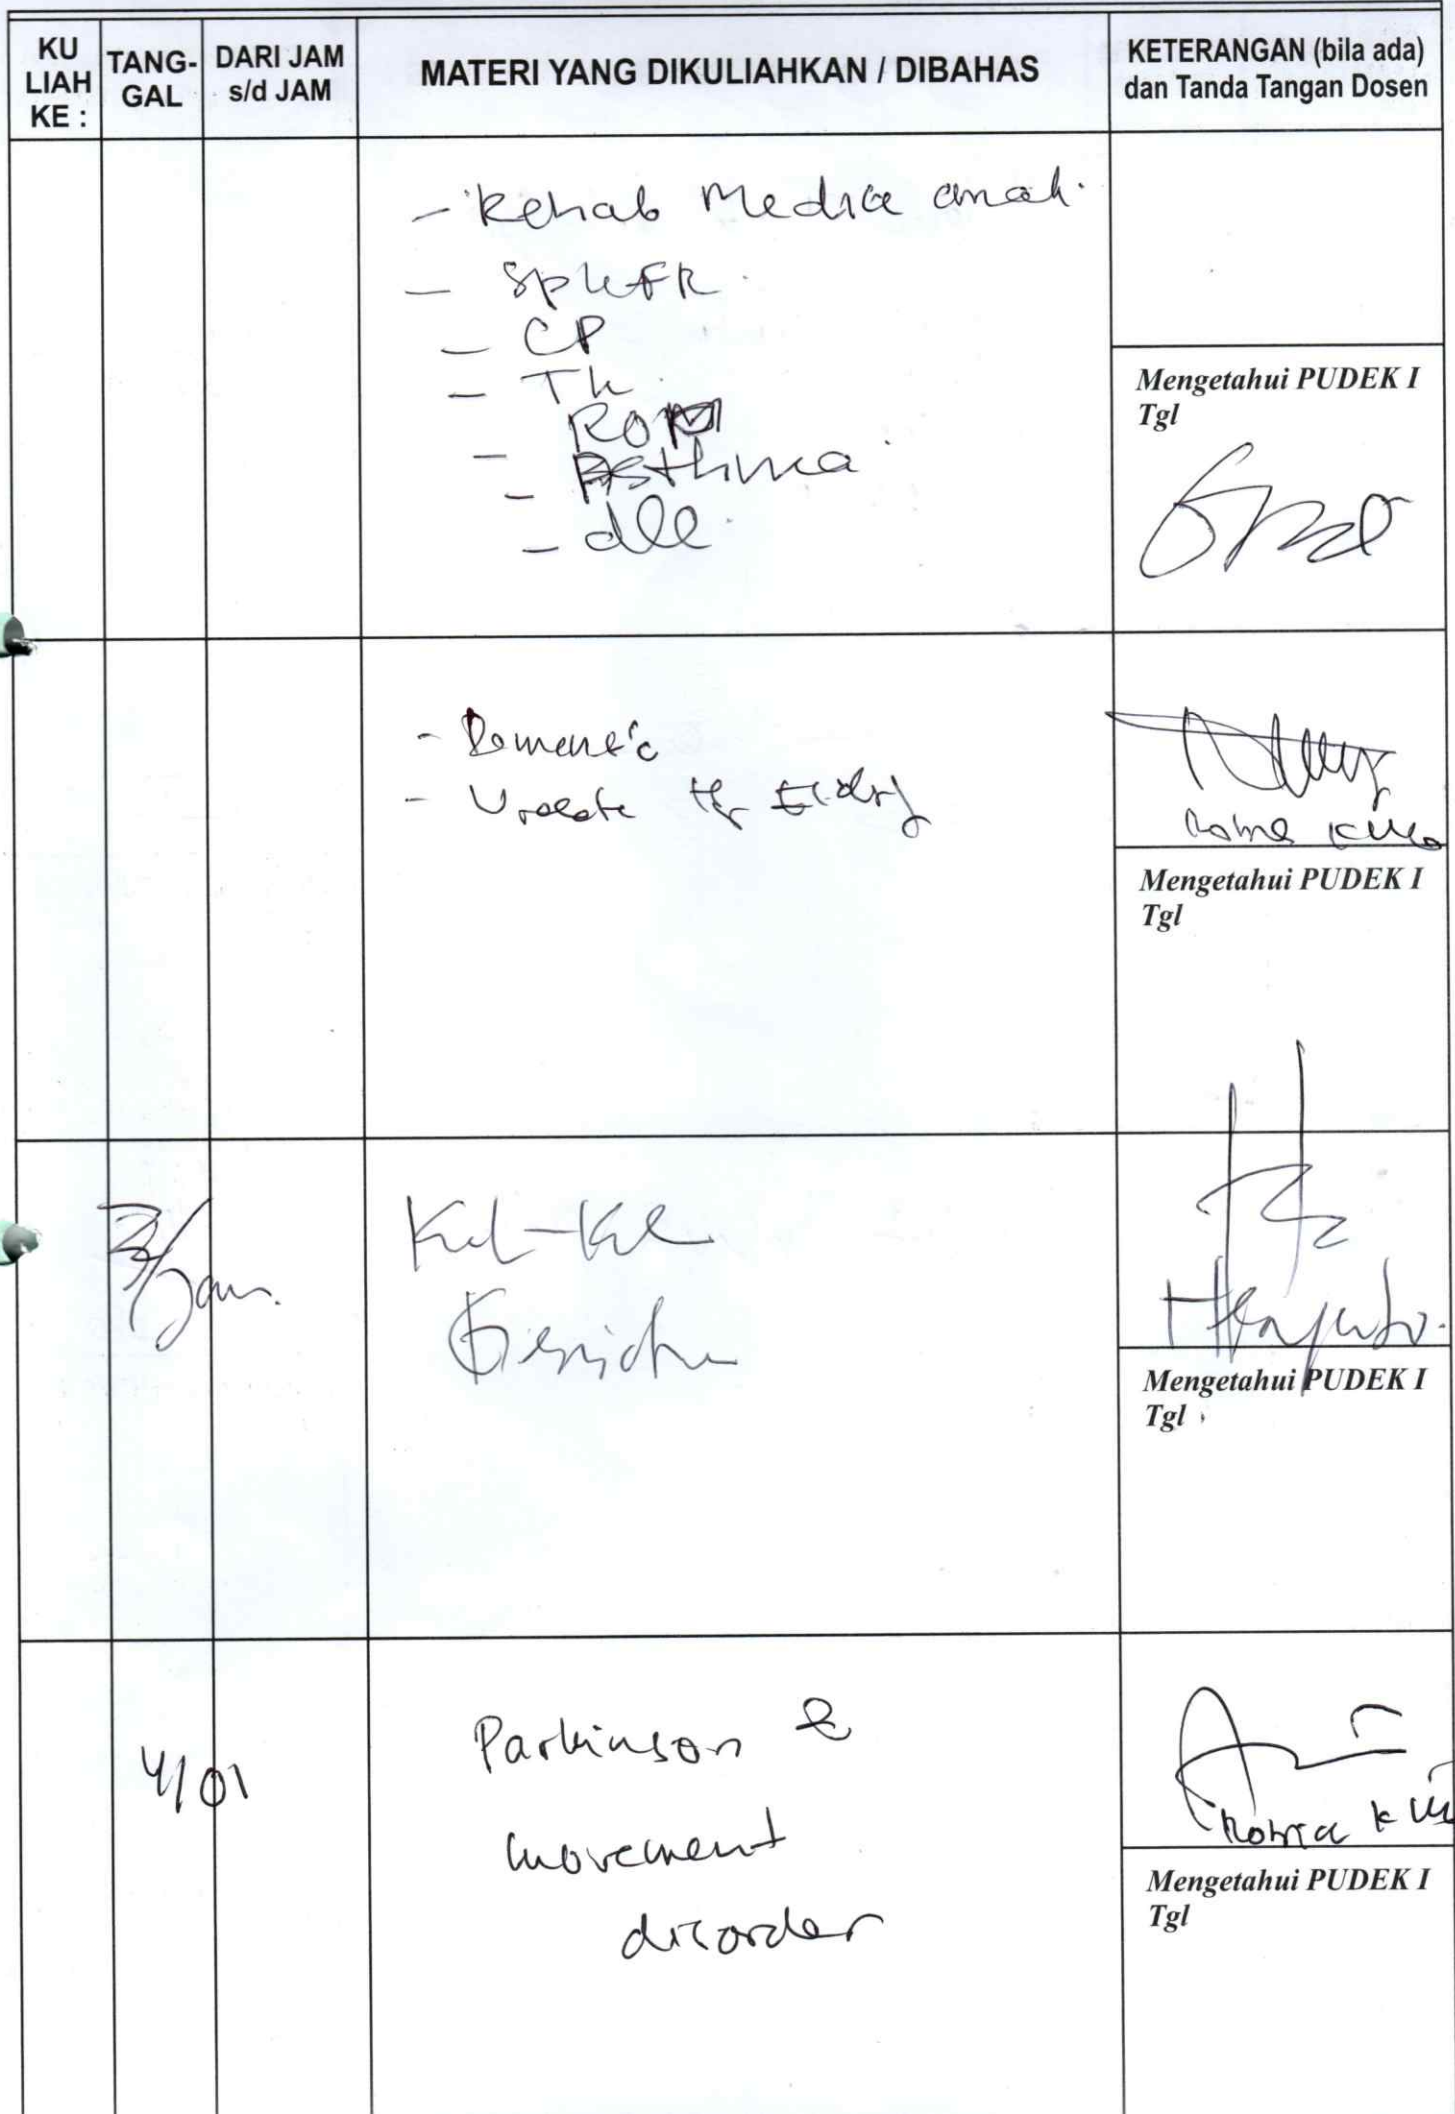 KU LIAH KE :
TANG-GAL
DARI JAM s/d JAM
MATERI YANG DIKULIAHKAN / DIBAHAS
KETERANGAN (bila ada) dan Tanda Tangan Dosen
- Rehab Medica anak.
- SpKFR.
- CP
- Th.
- ROM
- Asthma
- dll.
Mengetahui PUDEK I
Tgl
- Demensia
Mengetahui PUDEK I
Tgl
3/Jan.
Mengetahui PUDEK I
Tgl
4/01
Parkinson &
movement
disorder
Mengetahui PUDEK I
Tgl